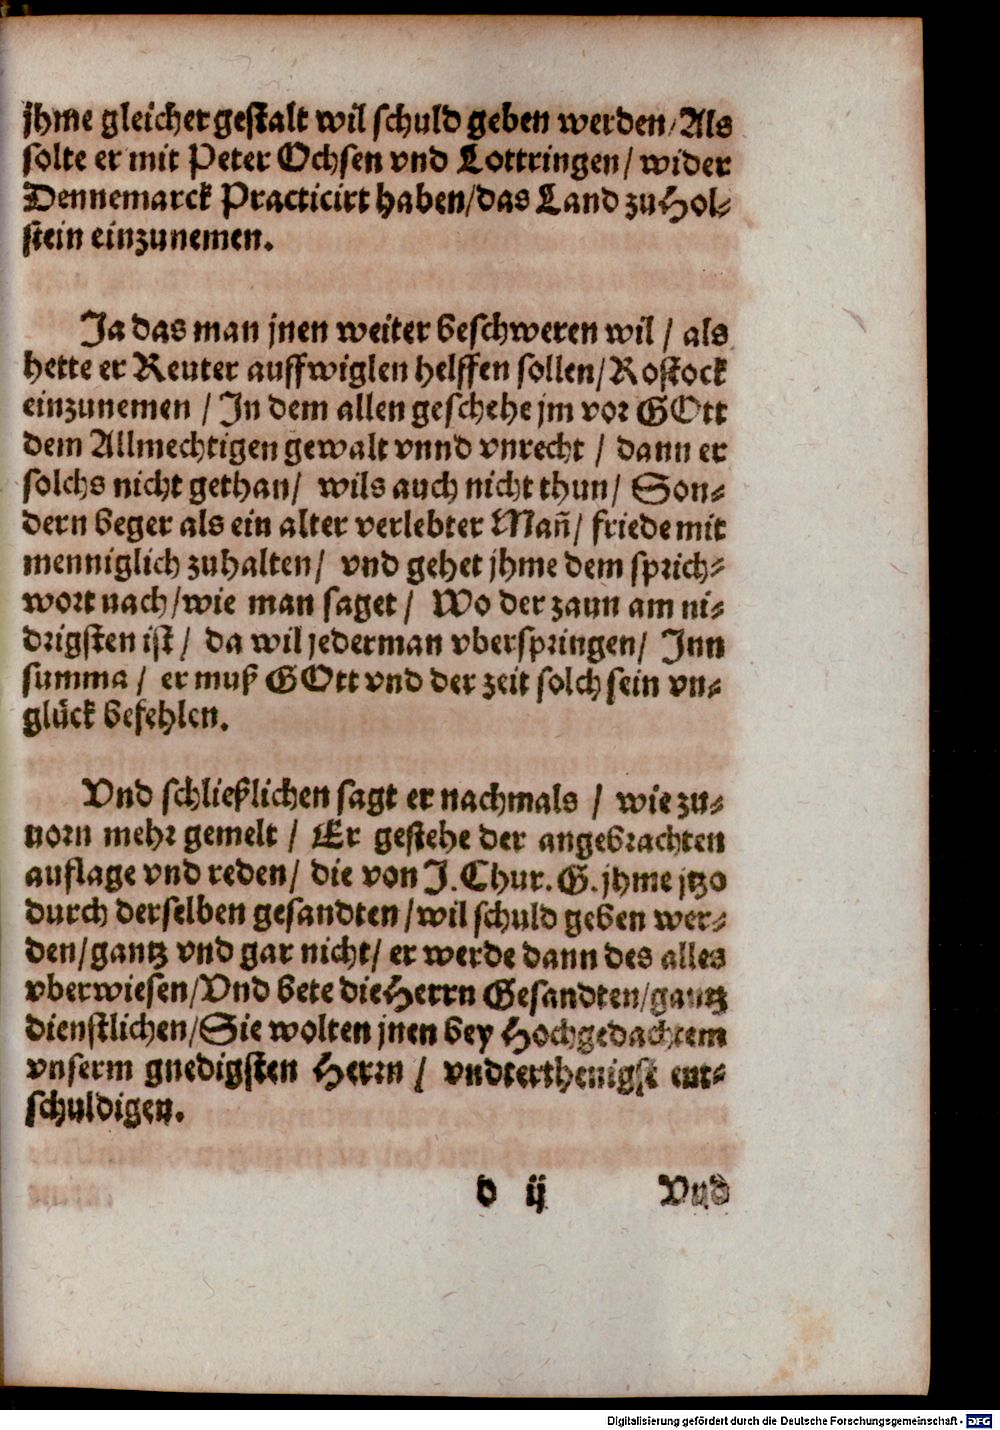 jhme gleicher gestalt wil schuld geben werden/Als
solte er mit Peter Ochsen vnd Lottringen/ wider
Dennemarck Practicirt haben/das Land zu Hol-
stein einzunemen.
Ja das man jnen weiter beschweren wil / als
hette er Reuter auffwiglen helffen sollen/Rostock
einzunemen / In dem allen geschehe jm vor GOtt
dem Allmechtigen gewalt vnnd vnrecht / dann er
solchs nicht gethan/ wils auch nicht thun/ Son-
dern beger als ein alter verlebter Mañ/ friede mit
menniglich zuhalten/ vnd gehet jhme dem sprich-
wort nach/wie man saget / Wo der zaun am ni-
drigsten ist / da wil jederman vberspringen/ Inn
summa / er muß GOtt vnd der zeit solch sein vn-
glück befehlen.
Vnd schließlichen sagt er nachmals / wie zu-
uorn mehr gemelt / Er gestehe der angebrachten
auflage vnd reden/ die von J. Chur. G. jhme jtzo
durch derselben gesandten/wil schuld geben wer-
den/gantz vnd gar nicht/ er werde dann des alles
vberwiesen/Vnd bete die Herrn Gesandten/gantz
dienstlichen/Sie wolten jnen bey Hochgedachtem
vnserm gnedigsten Herrn / vndterthenigst ent-
schuldigen.
d ij Vnd
Digitalisierung gefördert durch die Deutsche Forschungsgemeinschaft - DFG